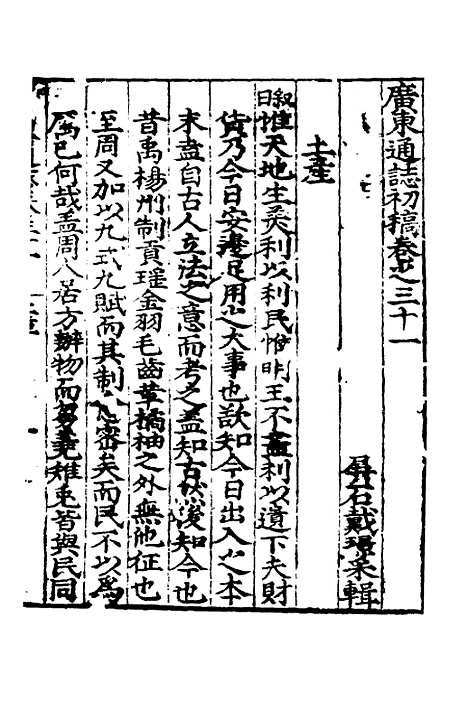 廣東通誌初稿卷之三十一
屏石戴璟采輯
土產
叙曰惟天地生美利以利民惟明王不盡利以遺下夫財
貨乃今日安邊足用之大事也欲知今日出入之本
末盍自古人立法之意而考之盖知古然後知今也
昔禹楊州制貢瑶金羽毛齒革橘柚之外無他征也
至周又加以九式九賦而其制密矣而民不以為
厲已何哉盖周人居方辦物而芻蕘雉兎皆與民同